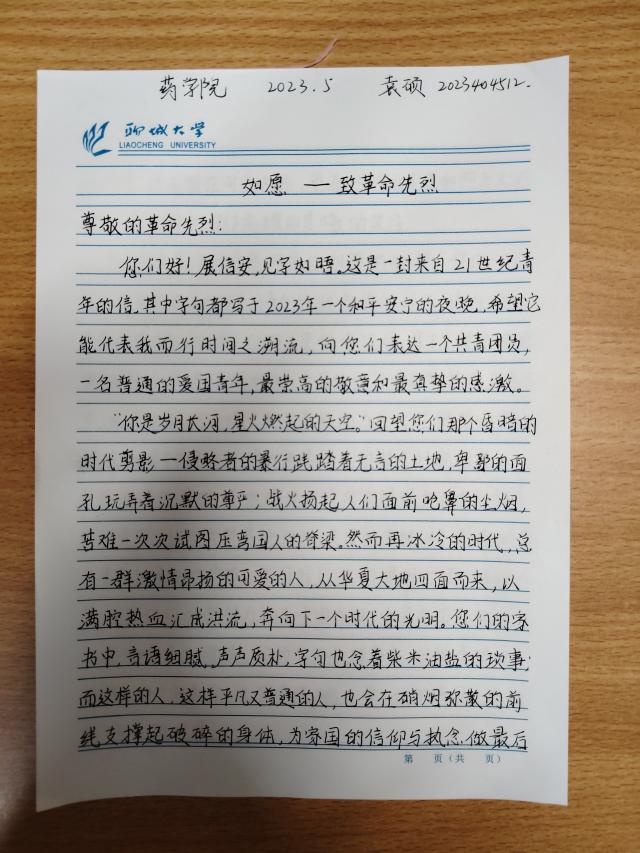 药学院 2023.5 袁硕 2023404512.
聊城大学
LIAOCHENG UNIVERSITY
如愿 — 致革命先烈
尊敬的革命先烈:
您们好!展信安,见字如晤。这是一封来自21世纪青
年的信,其中字句都写于2023年一个和平安宁的夜晚,希望它
能代表我而行时间之溯流,向您们表达一个共青团员,
一名普通的爱国青年,最崇高的敬意和最真挚的感激。
“你是岁月长河,星火燃起的天空。”回望您们那个昏暗的
时代剪影—侵略者的暴行践踏着无言的土地,卑鄙的面
孔玩弄着沉默的尊严;战火扬起人们面前呛鼻的尘烟,
苦难一次次试图压弯国人的脊梁。然而再冰冷的时代,总
有一群激情昂扬的可爱的人,从华夏大地四面而来,以
满腔热血汇成洪流,奔向下一个时代的光明。您们的家
书中,言语细腻,声声质朴,字句也念着柴米油盐的琐事;
而这样的人,这样平凡又普通的人,也会在硝烟弥散的前
线支撑起破碎的身体,为家国的信仰与执念做最后
第 页(共 页)